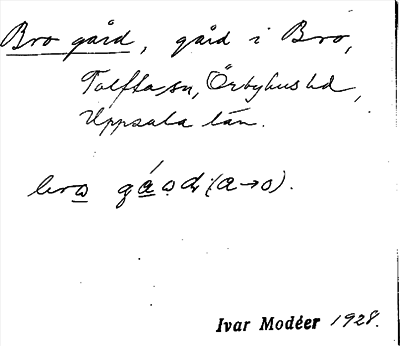 Bro gård, gård i Bro,
Tolfta sn, Örbyhus hd,
Uppsala län.
bro gá̱o̱ḍ (a→o).
Ivar Modéer 1928.